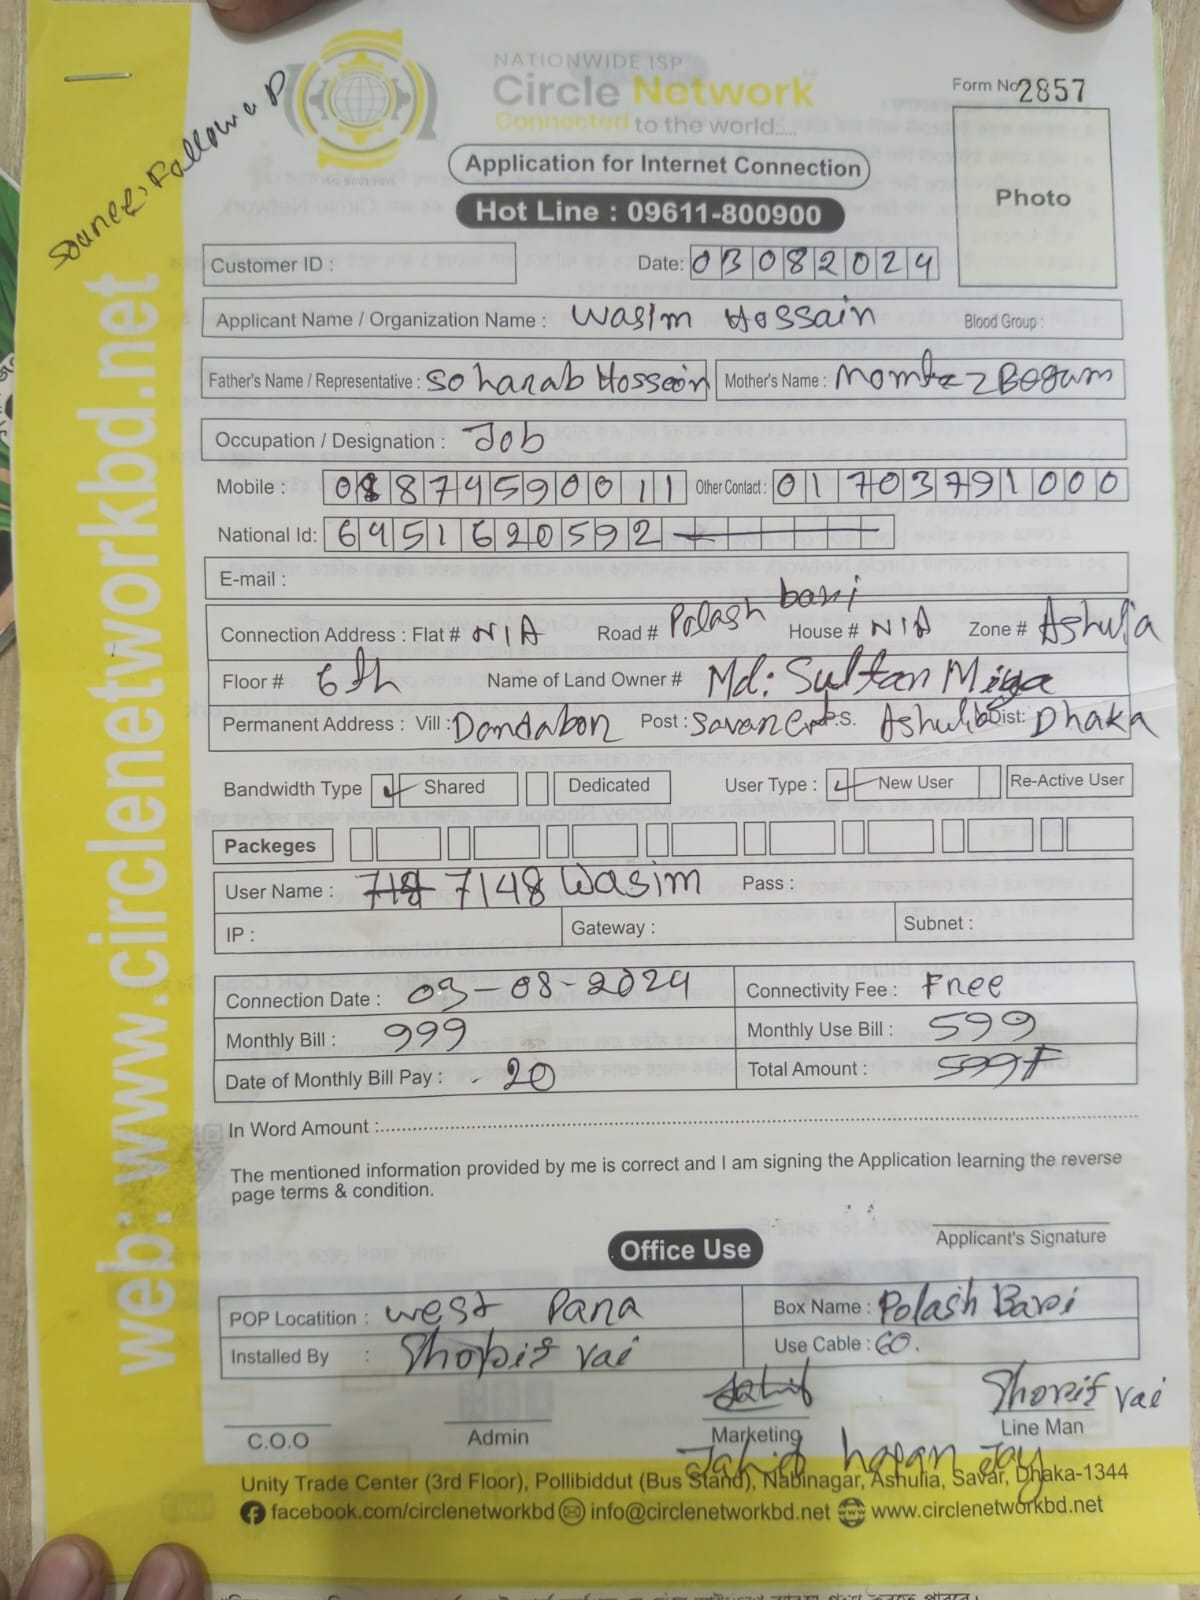 Source, Follow up
NATIONWIDE ISP
Circle Network
Connected to the world.....
Form No 2857
Application for Internet Connection
Photo
Hot Line : 09611-800900
Customer ID :
Date: 03082024
Applicant Name / Organization Name : Wasim Hossain Blood Group :
Father's Name / Representative : Soharab Hossain Mother's Name : Momtaz Begum
Occupation / Designation : Job
Mobile : 01874590011 Other Contact : 01703791000
National Id: 6451620592
E-mail :
Connection Address : Flat # N/A Road # Polash bari House # N/A Zone # Ashulia
Floor # 6th Name of Land Owner # Md: Sultan Miya
Permanent Address : Vill : Dandabon Post : Savar P.S. Ashulia Dist: Dhaka
Bandwidth Type Shared Dedicated User Type : New User Re-Active User
Packeges
User Name : 7148 Wasim Pass :
IP : Gateway : Subnet :
Connection Date : 03-08-2024 Connectivity Fee : Free
Monthly Bill : 999 Monthly Use Bill : 599
Date of Monthly Bill Pay : - 20 Total Amount : 599
In Word Amount :
The mentioned information provided by me is correct and I am signing the Application learning the reverse
page terms & condition.
Applicant's Signature
Office Use
POP Locatition : West Para Box Name : Polash Bari
Installed By : Shorif vai Use Cable : 60.
Shorif vai
C.O.O Admin Marketing Line Man
Jahid hasan Joy
Unity Trade Center (3rd Floor), Pollibiddut (Bus Stand), Nabinagar, Ashulia, Savar, Dhaka-1344
facebook.com/circlenetworkbd info@circlenetworkbd.net www.circlenetworkbd.net
web: www.circlenetworkbd.net